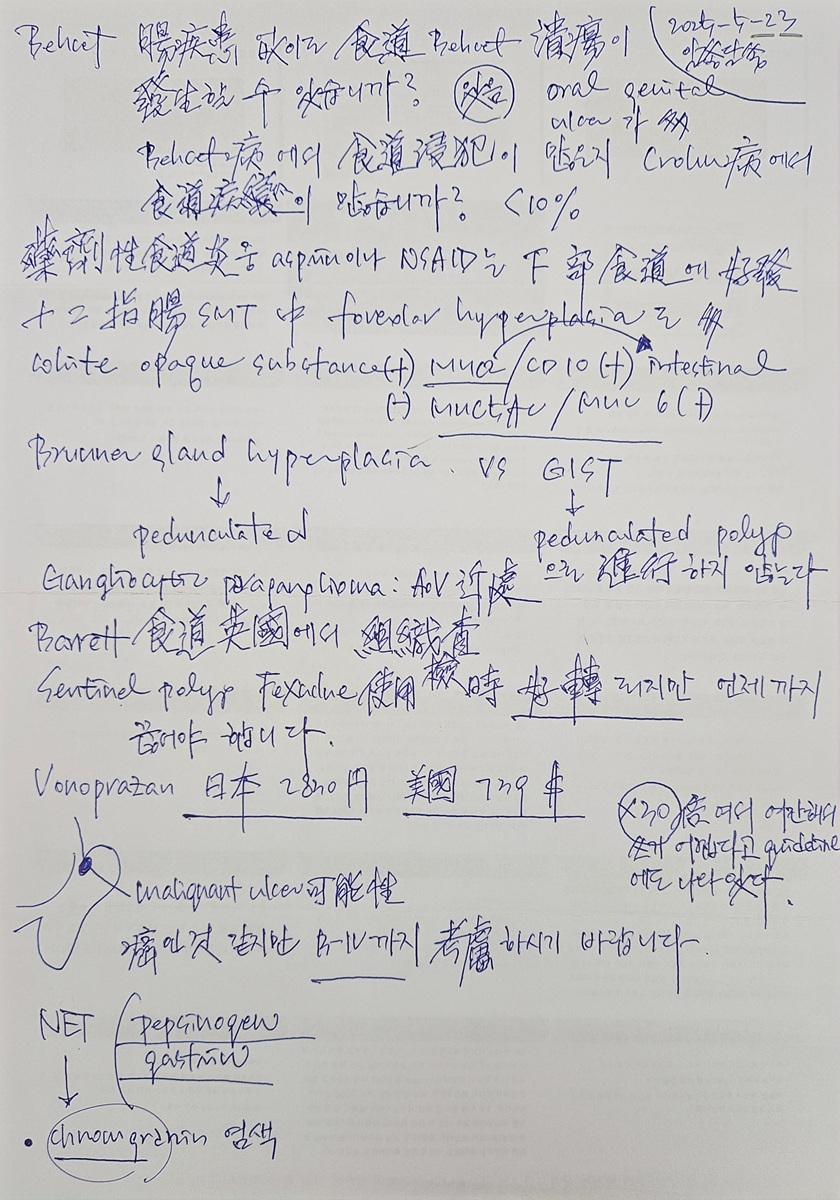 Behcet 腸疾患 없이도 食道 Behcet 潰瘍이
發生할 수 있습니까? 있음 oral genital
ulcer가 多
2025-5-23
Behcet病에서 食道侵犯이 많은지 Crohn病에서
食道病變이 많습니까? <10%
藥劑性食道炎은 aspirin이나 NSAID는 下部食道에 好發
十二指腸 SMT 中 foveolar hyperplasia도 多
white opaque substance(+) MUC2/CD10(+) intestinal
(-) MUC5AC/MUC6(+)
Brunner gland hyperplasia vs GIST
↓ ↓
pedunculated pedunculated polyp
으로 進行하지 않는다
Gangliocytic paraganglioma: AoV 近處
Barrett 食道 英國에서 組織檢査
Sentinel polyp Fexadine 使用時 好轉되지만 언제까지
끊어야 합니다.
Vonoprazan 日本 2830円 美國 739 $
×30
어렵다고 guideline
에도 나타 있다.
malignant ulcer 可能性
癌인 것 같지만 B-IV까지 考慮하시기 바랍니다.
NET pepsinogen
gastrin
↓
• chromogranin 염색